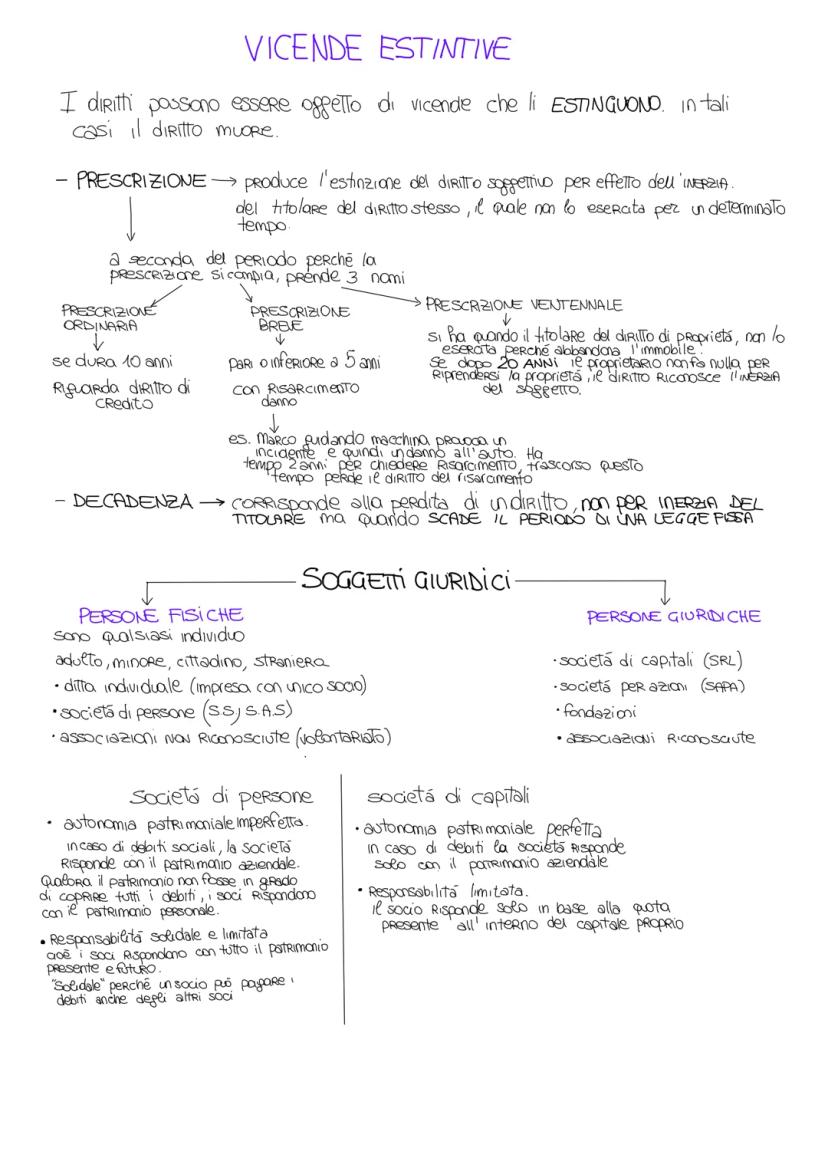 VICENDE ESTINTIVE
I diritti possono essere oggetto di vicende che li ESTINGUONO. in tali
casi il diritto muore.
- PRESCRIZIONE → produce l'estinzione del diritto soggettivo per effetto dell'INERZIA.
del titolare del diritto stesso, il quale non lo esercita per un determinato
tempo.
a seconda del periodo perché la
prescrizione si compia, prende 3 nomi
PRESCRIZIONE
ORDINARIA
se dura 10 anni
Riguarda diritto di
credito
PRESCRIZIONE
BREVE
pari o inferiore a 5 anni
con risarcimento
danno
es. Marco guidando macchina provoca un
incidente e quindi un danno all'auto. Ha
tempo 2 anni per chiedere risarcimento, trascorso questo
tempo perde il diritto del risarcimento
PRESCRIZIONE VENTENNALE
si ha quando il titolare del diritto di proprietá, non lo
esercita perché abbandona l'immobile.
Se dopo 20 ANNI il proprietario non fa nulla per
riprendersi la proprietá, il diritto riconosce l'INERZIA
del soggetto.
- DECADENZA → corrisponde alla perdita di un diritto, non PER INERZIA DEL
TITOLARE ma quando SCADE IL PERIODO DI UNA LEGGE FISSA
SOGGETTI GIURIDICI
PERSONE FISICHE
sono qualsiasi individuo
adulto, minore, cittadino, straniera
• ditta individuale (impresa con unico socio)
• societá di persone (S.S; S.A.S)
• associazioni non riconosciute (volontariato)
PERSONE GIURIDICHE
• societá di capitali (SRL)
• societá per azioni (SAPA)
• fondazioni
• associazioni riconosciute
Societá di persone
• autonomia patrimoniale imperfetta.
in caso di debiti sociali, la societá
risponde con il patrimonio aziendale.
Qualora il patrimonio non fosse in grado
di coprire tutti i debiti, i soci rispondono
con il patrimonio personale.
• Responsabilitá solidale e limitata
cioè i soci rispondono con tutto il patrimonio
presente e futuro.
"Solidale" perché un socio puó pagare i
debiti anche degli altri soci
societá di capitali
• autonomia patrimoniale perfetta
in caso di debiti la societá risponde
solo con il patrimonio aziendale
• Responsabilitá limitata.
il socio risponde solo in base alla quota
presente all'interno del capitale proprio